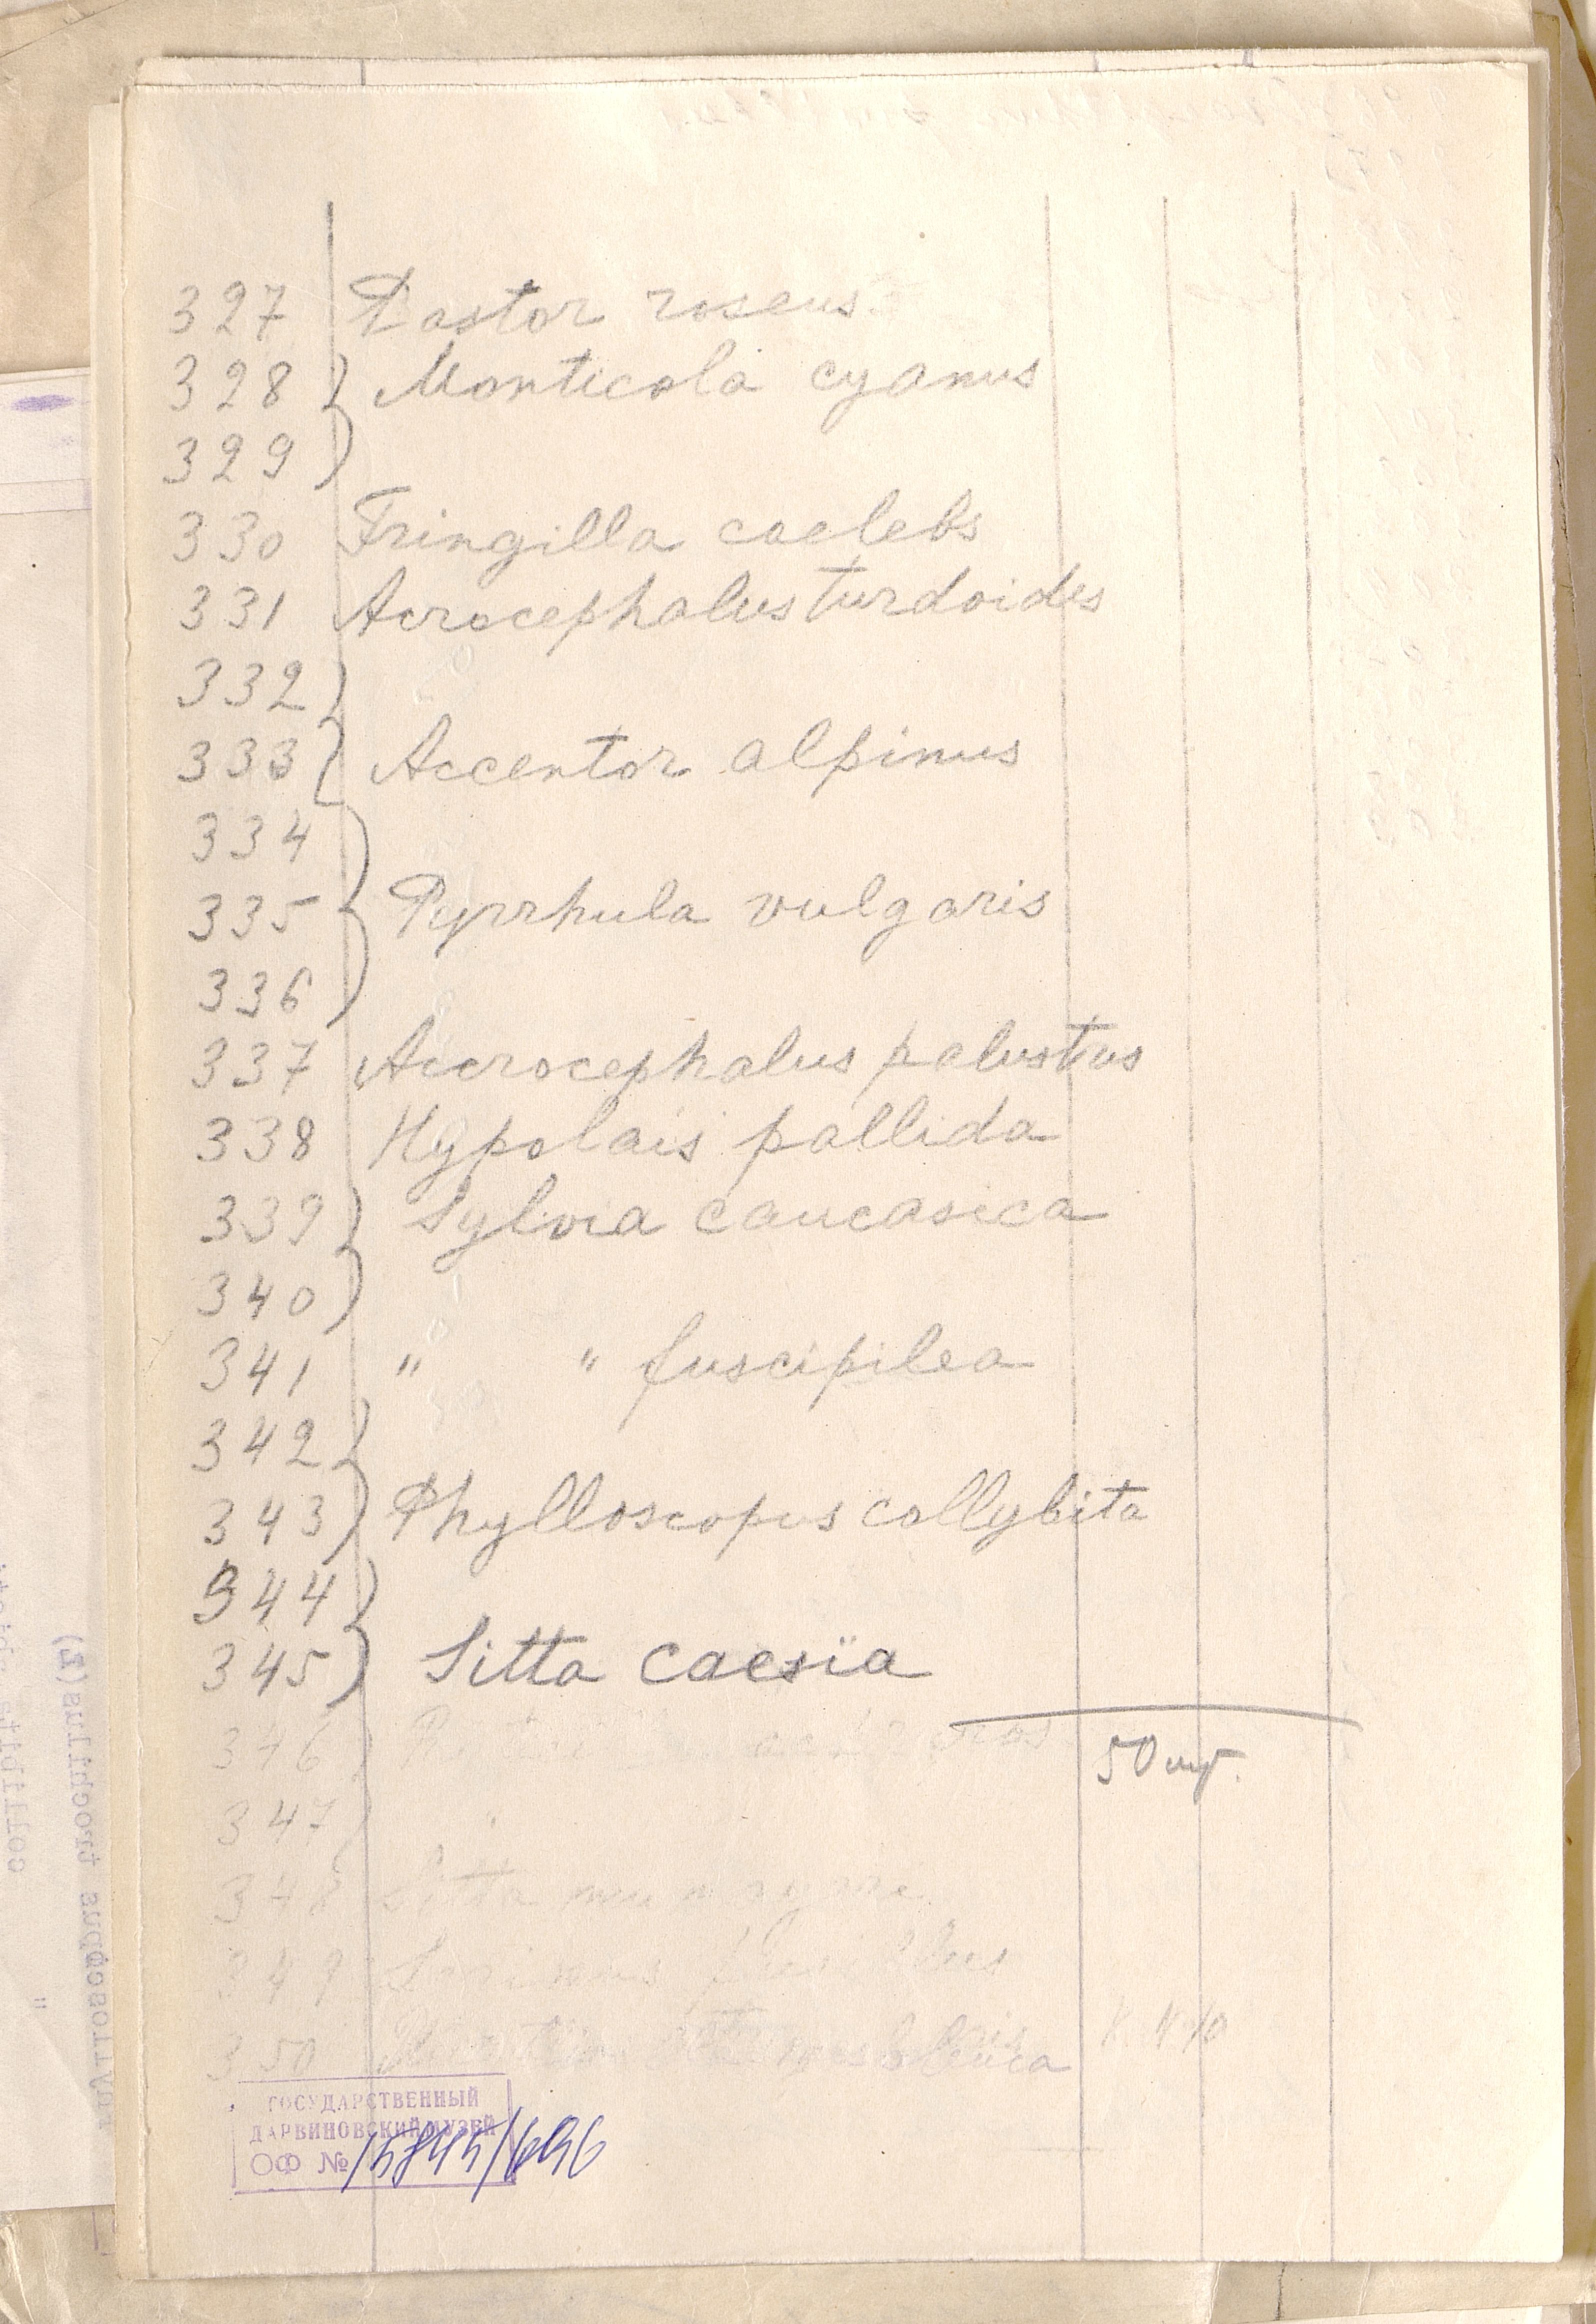 327 Pastor roseus
328 } Monticola cyanus
329 }
330 Fringilla caelebs
331 Acrocephalus turdoides
332 }
333 } Accentor alpinus
334
335 } Pyrrhula vulgaris
336
337 Acrocephalus palustris
338 Hypolais pallida
339 } Sylvia caucasica
340 }
341 " " fuscipilea
342 }
343 } Phylloscopus collybita
344 }
345 } Sitta caesia
346
50 шт.
347 "
348 Sitta
349 Serinus pusillus
350
ГОСУДАРСТВЕННЫЙ
ДАРВИНОВСКИЙ МУЗЕЙ
ОФ № 15845/696